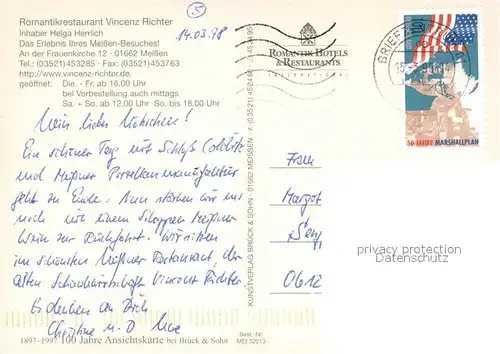 Romantikrestaurant Vincenz Richter
Inhaber Helga Herrlich
Das Erlebnis Ihres Meißen-Besuches!
An der Frauenkirche 12 · 01662 Meißen
Tel.: (03521)453285 · Fax: (03521)453763
http://www.vincenz-richter.de
geöffnet: Die. - Fr. ab 16.00 Uhr
bei Vorbestellung auch mittags
Sa. + So. ab 12.00 Uhr So. bis 18.00 Uhr
5
14.03.98
ROMANTIK HOTELS
& RESTAURANTS
INTERNATIONAL
100
50 JAHRE MARSHALLPLAN
Mein liebes
Ein schöner Tag mit Schloß Colditz
und Meißner Porzellanmanufaktur
geht zu Ende. Nun stärken wir uns
noch mit einem Schoppen Meißner
Wein zur Rückfahrt. Wir sitzen
im schönsten Meißner Restaurant, der
alten Vincenz Richter
Es denken an Dich
Christine u. Uwe
KUNSTVERLAG BRÜCK & SOHN · 01662 MEISSEN
Frau
Margot
0612
privacy protection
Datenschutz
1897-1997 100 Jahre Ansichtskarte bei Brück & Sohn
Best.-Nr.
MEI 32013